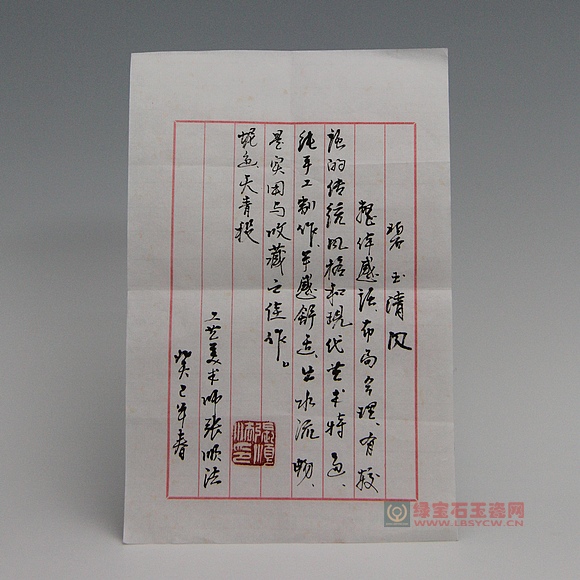 碧玉清风
整体感强、布局合理、有较
强的传统风格和现代艺术特色、
纯手工制作、手感舒适、出水流畅、
是实用与收藏之佳作。
泥色天青提
工艺美术师张顺法
癸巳年春
张顺
法制
绿宝石玉瓷网
WWW.LBSYCW.CN